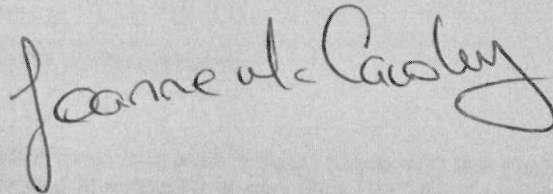 Joanne Mc Cawley